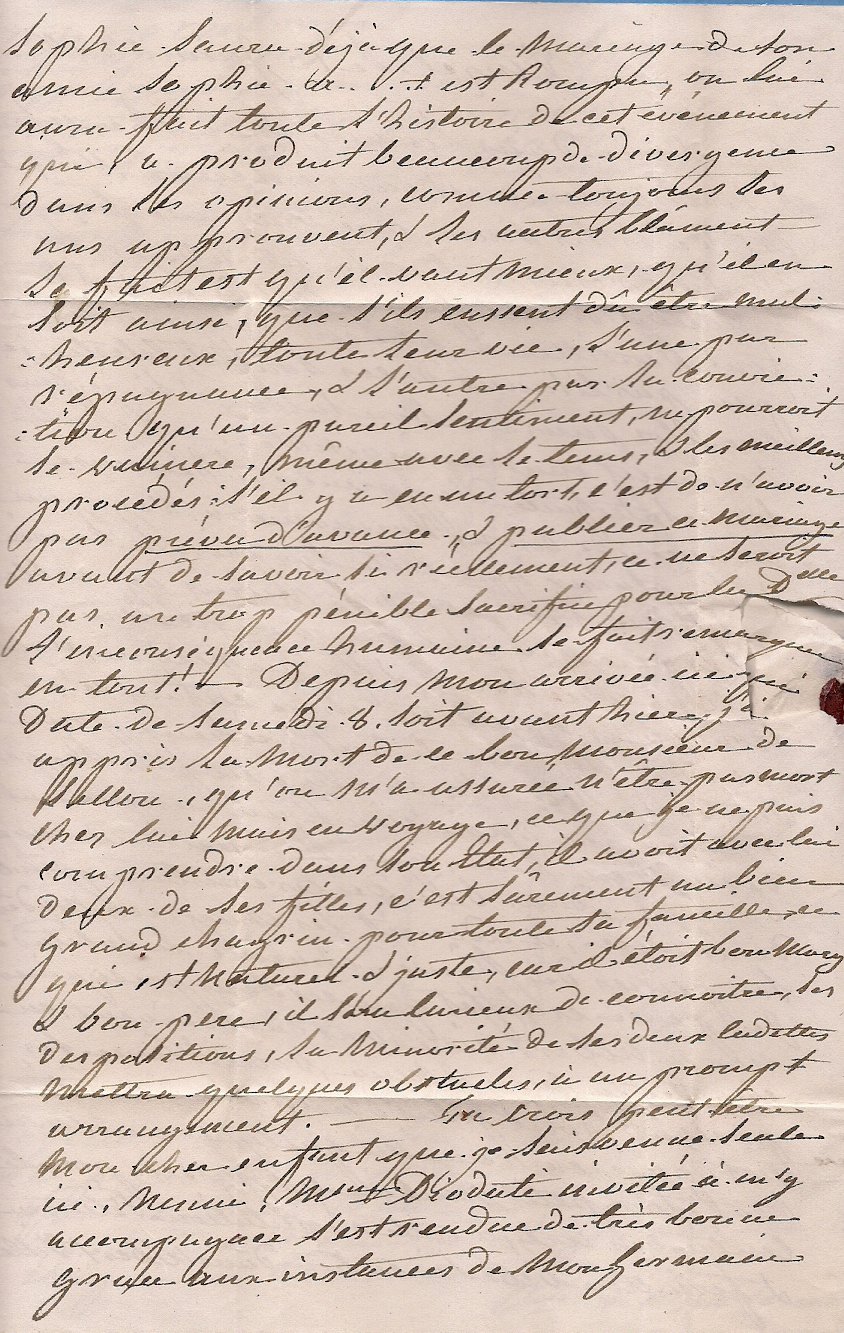 Sophie Saura déjà que le Mariage de son
amie Sophie a . . t est Rompu, on lui
aura fait toute l'histoire de cet événement
qui, a produit beaucoup de divergence
dans les opinions, comme toujours les
uns approuvent, & les autres blâment
Le fait est qu'il vaut mieux, qu'il en
soit ainsi, que s'ils eussent dû être mal:
:heureux, toute leur vie, l'une par
répugnance, & l'autre par la convic:
:tion qu'un pareil sentiment, ne pourroit
se vaincre, même avec le tems, & les meilleurs
procédés: s'il y a eu un tort, c'est de n'avoir
pas prévu d'avance, & publier ce Mariage
avant de savoir si réelement, ce ne seroit
pas un trop pénible Sacrifice pour la Dlle
L'inconséquence humaine se fait remarquer
en tout! — Depuis mon arrivée ici qui
Date de Samedi 8. soit avant hier j'ai
appris la Mort de ce bon Monsieur de
Sellon, qu'on m'a assurée n'être pas mort
chez lui mais en Voyage, ce que je ne puis
comprendre dans son Etat, il avoit avec lui
deux de ses filles, c'est sûrement un bien
grand chagrin pour toute sa famille, ce
qui est Naturel & juste, car il étoit bon Mary
& bon pere, il sera curieux de connoitre, ses
dispositions, la Minorité de ses deux cadettes
mettra quelques obstacles, à un prompt
arrangement. — Tu crois peut être
mon cher enfant que je suis venue seule
ici, Nenni, Mme Diodati invitée à m'y
accompagner s'est rendue de très bonne
grace aux instances de Mon Germain